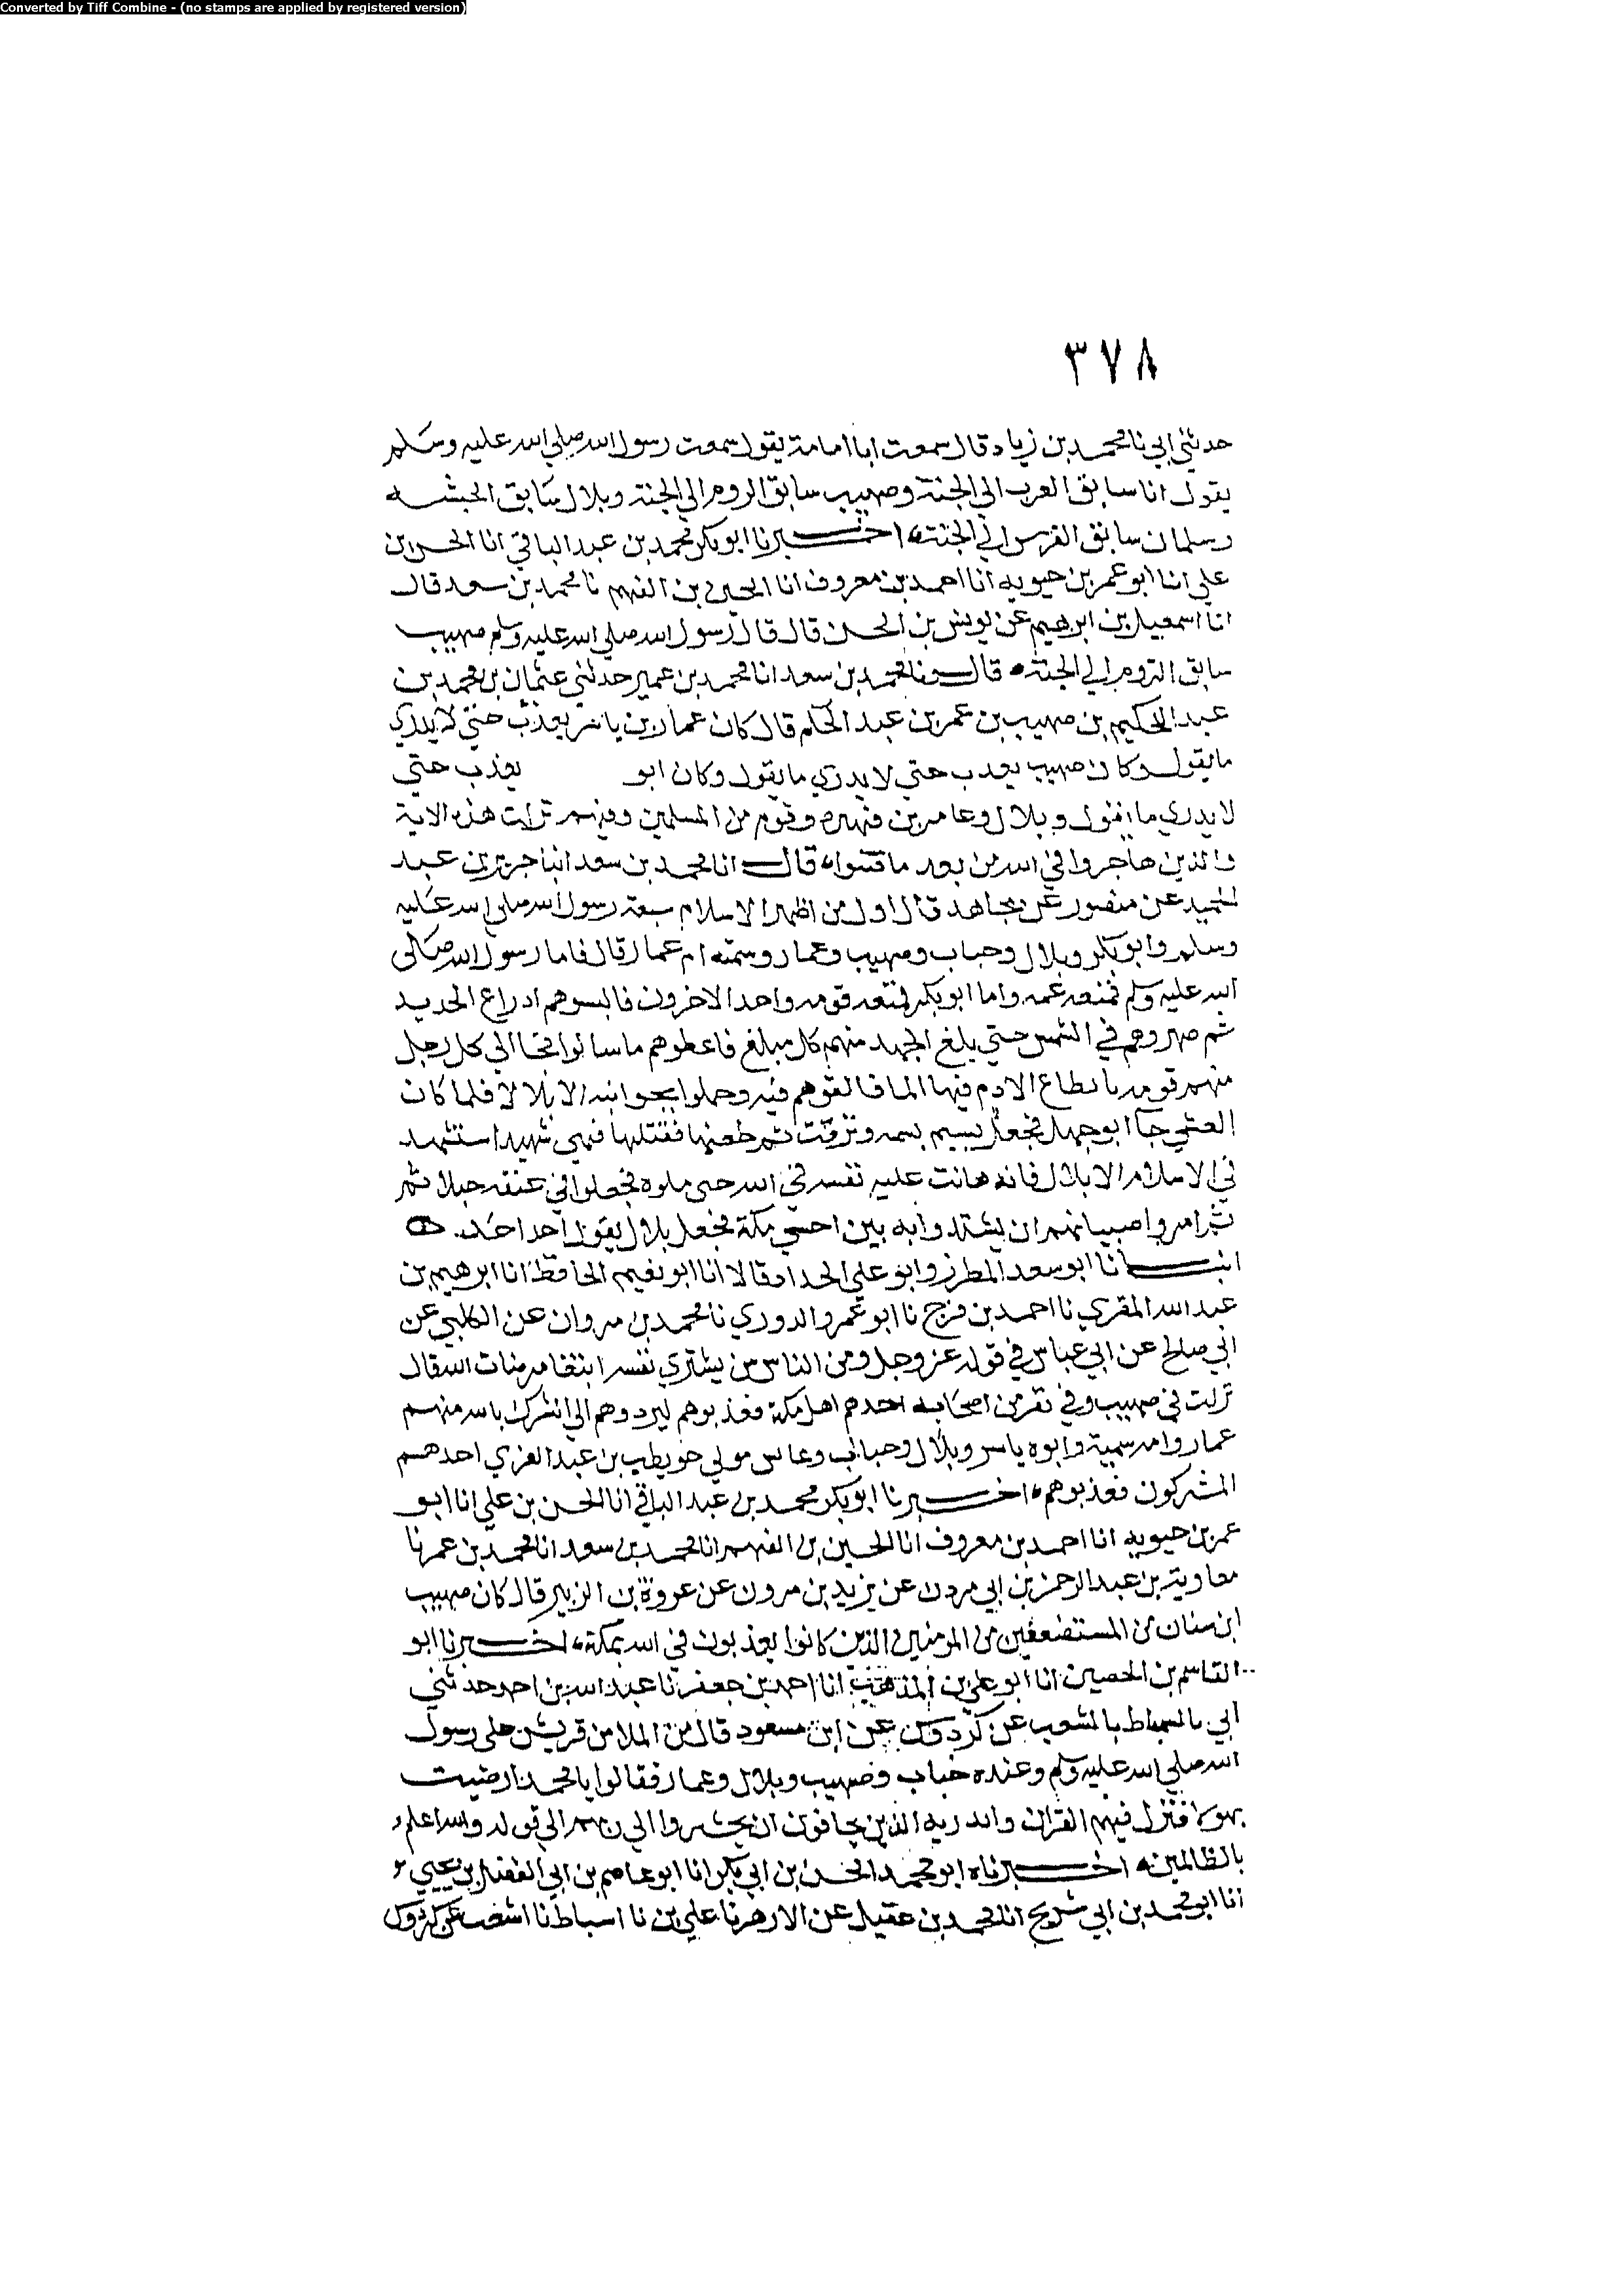 Converted by Tiff Combine - (no stamps are applied by registered version)
٣٧٨
حدثني ابي نا محمد بن زياد قال سمعت ابا امامة يقول سمعت رسول الله صلي الله عليه وسلم
يقول انا سابق العرب الي الجنة وصهيب سابق الروم الي الجنة وبلال سابق الحبشه
وسلمان سابق الفرس الي الجنة، اخبرنا ابو بكر محمد بن عبد الباقي انا الحسن بن
علي انا ابو عمر بن حيويه انا احمد بن معروف انا الحسين بن الفهم نا محمد بن سعد قال
انا اسمعيل بن ابرهيم عن يونس بن الحسن قال قال رسول الله صلي الله عليه وسلم صهيب
سابق الروم الي الجنة، قال ونا محمد بن سعد انا محمد بن عمير حدثني عثمان بن محمد بن
عبد الحكيم بن صهيب بن عمر بن عبد الحكم قال كان عمار بن ياسر يعذب حتي لا يدري
ما يقول وكان صهيب يعذب حتي لا يدري ما يقول وكان ابو يعذب حتي
لا يدري ما يقول وبلال وعامر بن فهيره وقوم من المسلمين وفيهم نزلت هذه الاية
والذين هاجروا في الله من بعد ما فتنوا، قال انا محمد بن سعد انبا جرير بن عبد
الحميد عن منصور عن مجاهد قال اول من اظهر الاسلام سبعة رسول الله صلي الله عليه
وسلم وابو بكر وبلال وخباب وصهيب وعمار وسميه ام عمار قال فاما رسول الله صلى
الله عليه وسلم فمنعه عمه واما ابو بكر فمنعه قومه واخد الاخرون فالبسوهم ادراع الحديد
ثم صهروهم في الشمس حتي بلغ الجهد منهم كل مبلغ فاعطوهم ما سالوا فجا الي كل رجل
منهم قومه بانطاع الادم فيها الما فالقوهم فيه وحملوا بجوانبه الا بلالا فلما كان
العشي جآ ابو جهل فجعل يشيم بسمه وترفث ثم طعنها فقتلها فهي شهيد استشهد
في الاسلام الا بلال فانه هانت عليه نفسه في الله حتى ملوه فجعلوا في عنقه حبلا ثم
ثم امروا صبيانهم ان يشتدوا به بين اخشي مكة فجعل بلال يقول احد احد.
انبـانا ابو سعد المطرز وابو علي الحداد قالا انا ابو نعيم الحافظ انا ابرهيم بن
عبد الله المقري نا احمد بن فرج نا ابو عمرو الدوري نا محمد بن مروان عن الكلبي عن
ابي صالح عن ابي عباس في قوله عز وجل ومن الناس من يشتري نفسه ابتغا مرضات الله قال
نزلت في صهيب وفي نفر من اصحابه اخدهم اهل مكة فعذبوهم ليردوهم الي الشرك بالله منهم
عمار وامه سمية وابوه ياسر وبلال وخباب وعاس مولي حويطب بن عبد العزي اخدهم
المشركون فعذبوهم، اخبرنا ابو بكر محمد بن عبد الباقي انا الحسن بن علي انا ابو
عمر بن حيويه انا احمد بن معروف انا الحسين بن الفهم انا محمد بن سعد انا محمد بن عمر نا
معاوية بن عبد الرحمن بن ابي مردن عن يزيد بن مرون عن عروة بن الزبير قال كان صهيب
ابن سنان من المستضعفين من المومنين الذين كانوا يعذبون في الله بمكة، اخبرنا ابو
القاسم بن الحصين انا ابو علي بن المذهب انا احمد بن جعفر نا عبد الله بن احمد حدثني
ابي نا اسباط نا اشعب عن كردوس عن ابن مسعود قال من الملا من قريش على رسول
الله صلي الله عليه وسلم وعنده خباب وصهيب وبلال وعمار فقالوا يا محمد ارضيت
بهولا فنزل فيهم القران واندر به الذين يخافون ان يحشروا الي ربهم الي قوله والله اعلم
بالظالمين، اخبرناه ابو محمد الحسن بن ابي بكر انا ابو عاصم بن ابي الفضل بن يحيي
انا ابو محمد بن ابي شريح انا محمد بن عقيل عن الازهر نا علي بن نا اسباط نا اشعب عن كردوس